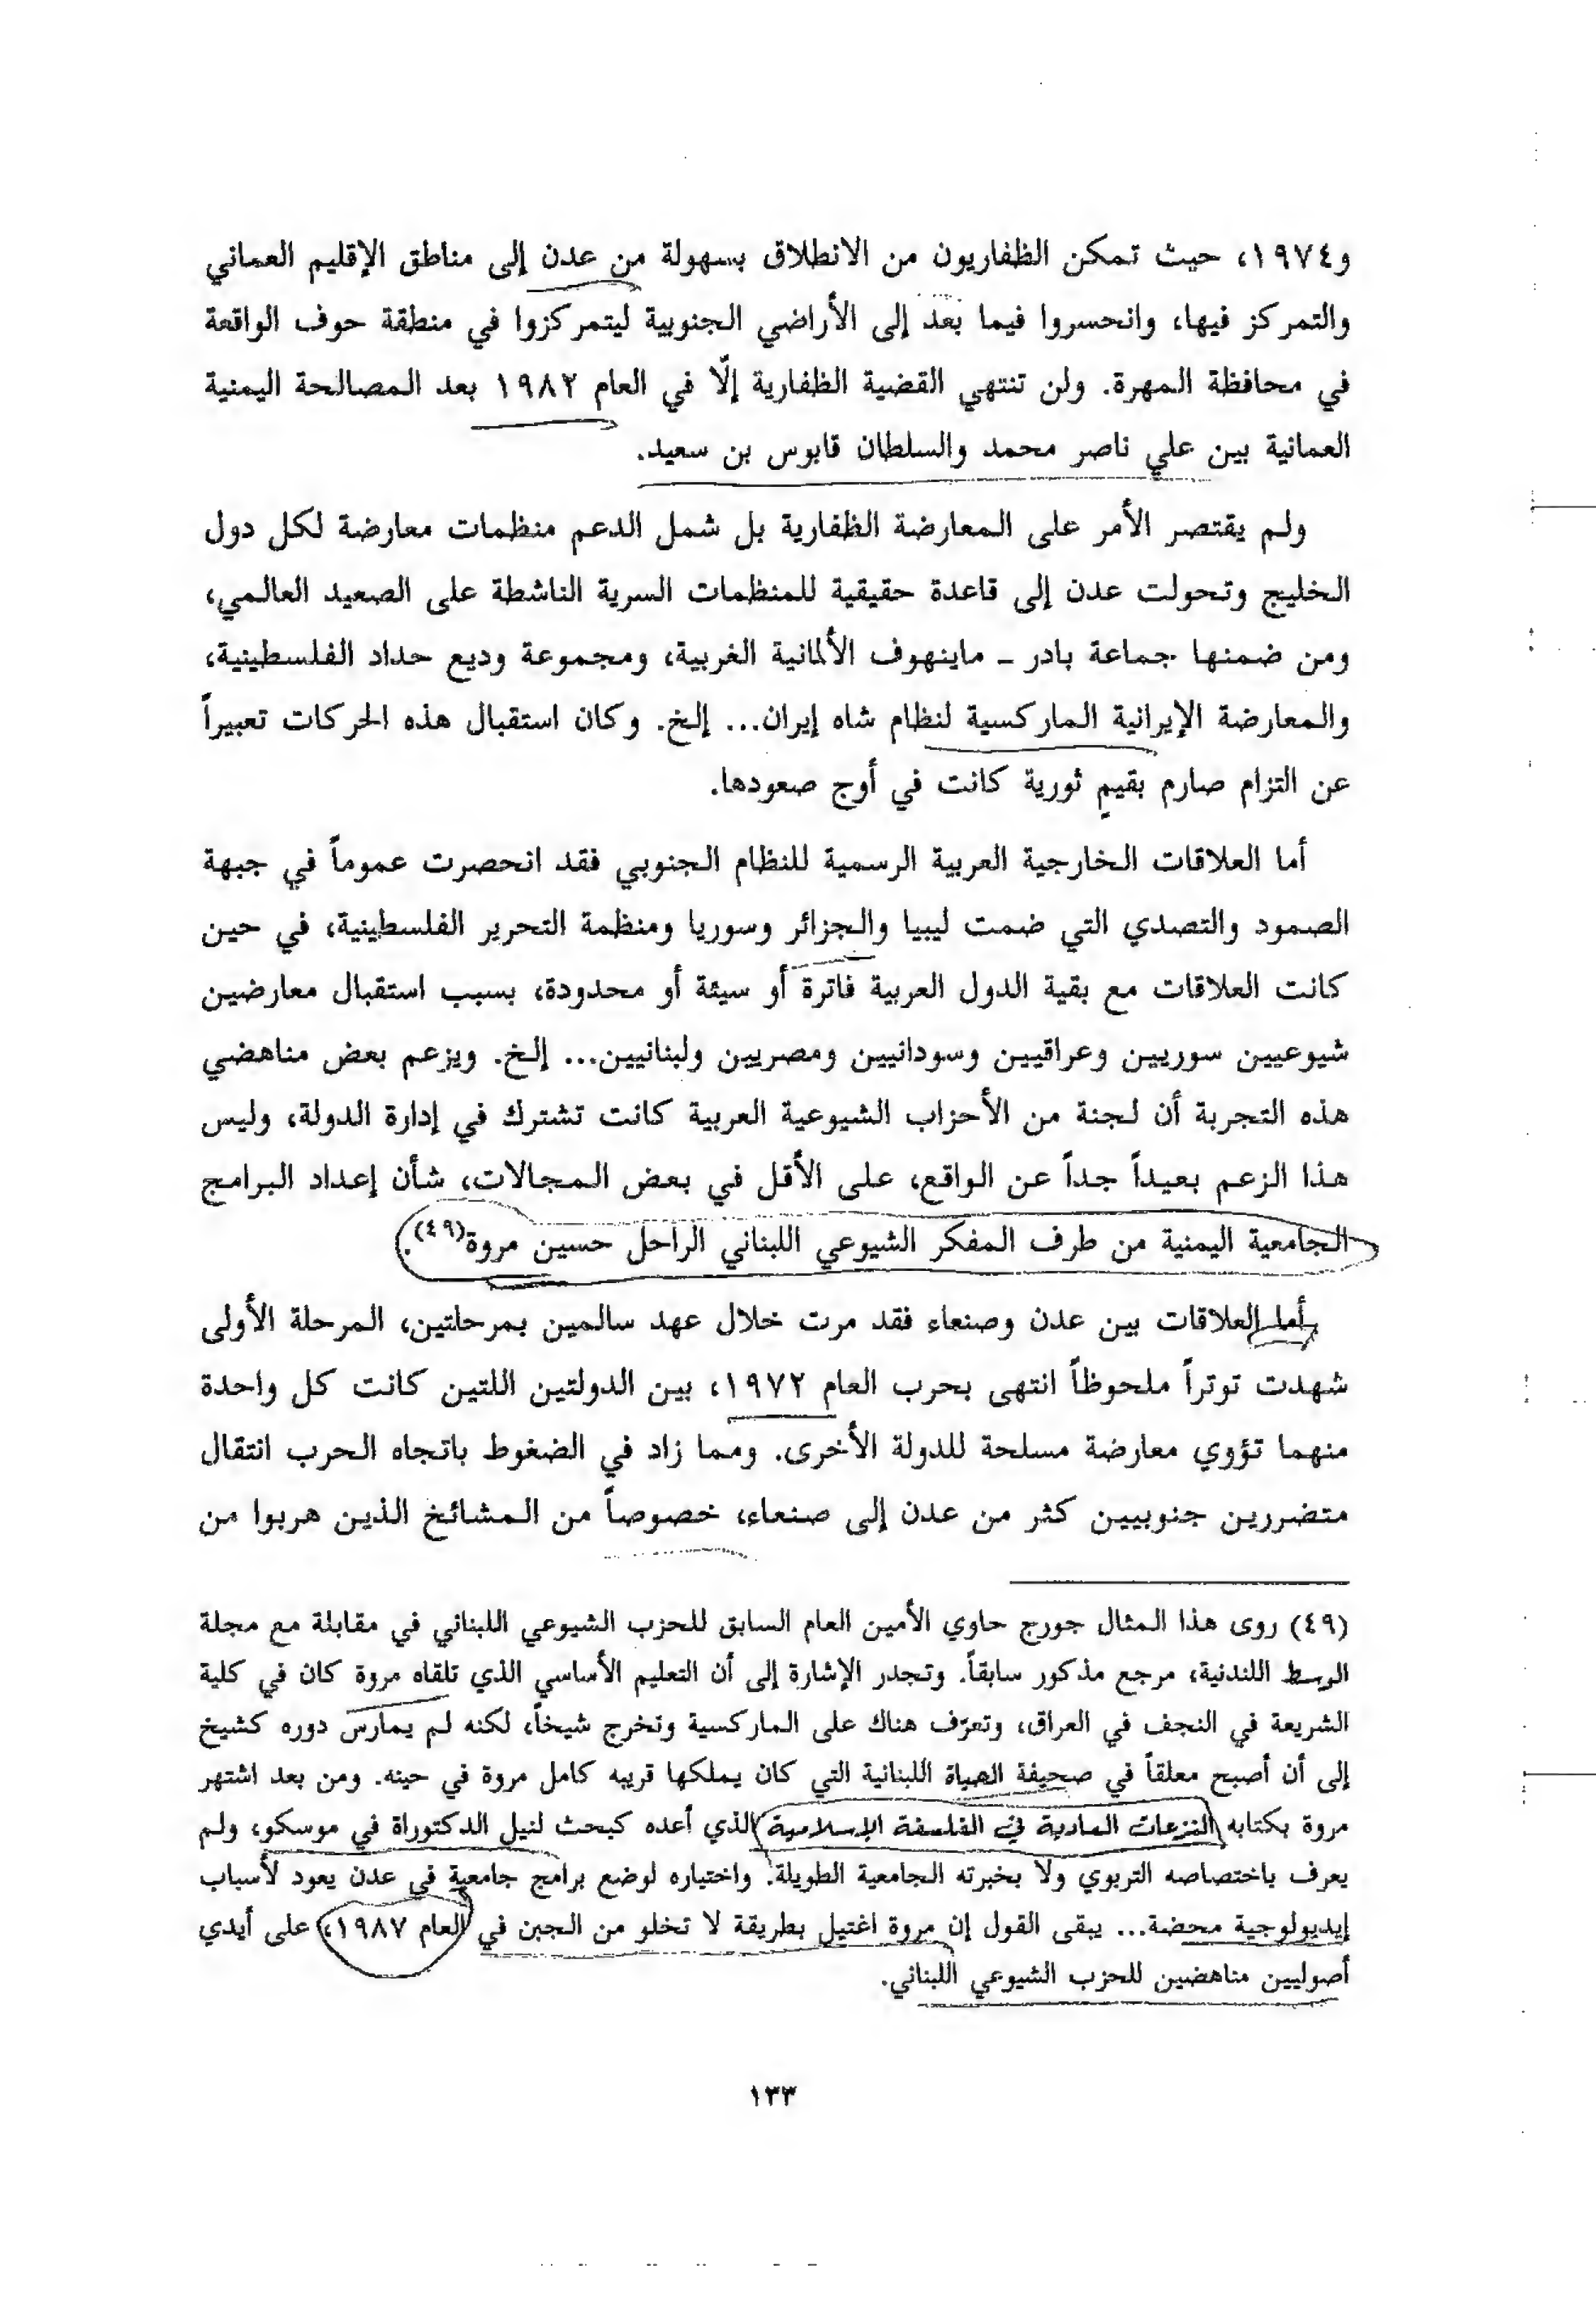 و١٩٧٤، حيث تمكن الظفاريون من الانطلاق بسهولة من عدن إلى مناطق الإقليم العماني
والتمركز فيها، وانحسروا فيما بعد إلى الأراضي الجنوبية ليتمركزوا في منطقة حوف الواقعة
في محافظة المهرة. ولن تنتهي القضية الظفارية إلّا في العام ١٩٨٢ بعد المصالحة اليمنية
العمانية بين علي ناصر محمد والسلطان قابوس بن سعيد.
ولم يقتصر الأمر على المعارضة الظفارية بل شمل الدعم منظمات معارضة لكل دول
الخليج وتحولت عدن إلى قاعدة حقيقية للمنظمات السرية الناشطة على الصعيد العالمي،
ومن ضمنها جماعة بادر ـ ماينهوف الألمانية الغربية، ومجموعة وديع حداد الفلسطينية،
والمعارضة الإيرانية الماركسية لنظام شاه إيران... إلخ. وكان استقبال هذه الحركات تعبيراً
عن التزام صارم بقيمٍ ثورية كانت في أوج صعودها.
أما العلاقات الخارجية العربية الرسمية للنظام الجنوبي فقد انحصرت عموماً في جبهة
الصمود والتصدي التي ضمت ليبيا والجزائر وسوريا ومنظمة التحرير الفلسطينية، في حين
كانت العلاقات مع بقية الدول العربية فاترة أو سيئة أو محدودة، بسبب استقبال معارضين
شيوعيين سوريين وعراقيين وسودانيين ومصريين ولبنانيين... إلخ. ويزعم بعض مناهضي
هذه التجربة أن لجنة من الأحزاب الشيوعية العربية كانت تشترك في إدارة الدولة، وليس
هذا الزعم بعيداً جداً عن الواقع، على الأقل في بعض المجالات، شأن إعداد البرامج
الجامعية اليمنية من طرف المفكر الشيوعي اللبناني الراحل حسين مروة(٤٩).
أما العلاقات بين عدن وصنعاء فقد مرت خلال عهد سالمين بمرحلتين، المرحلة الأولى
شهدت توتراً ملحوظاً انتهى بحرب العام ١٩٧٢، بين الدولتين اللتين كانت كل واحدة
منهما تؤوي معارضة مسلحة للدولة الأخرى. ومما زاد في الضغوط باتجاه الحرب انتقال
متضررين جنوبيين كثر من عدن إلى صنعاء، خصوصاً من المشائخ الذين هربوا من
(٤٩) روى هذا المثال جورج حاوي الأمين العام السابق للحزب الشيوعي اللبناني في مقابلة مع مجلة
الوسط اللندنية، مرجع مذكور سابقاً. وتجدر الإشارة إلى أن التعليم الأساسي الذي تلقاه مروة كان في كلية
الشريعة في النجف في العراق، وتعرّف هناك على الماركسية وتخرج شيخاً، لكنه لم يمارس دوره كشيخ
إلى أن أصبح معلقاً في صحيفة الحياة اللبنانية التي كان يملكها قريبه كامل مروة في حينه. ومن بعد اشتهر
مروة بكتابه النزعات المادية في الفلسفة الإسلامية الذي أعده كبحث لنيل الدكتوراة في موسكو، ولم
يعرف باختصاصه التربوي ولا بخبرته الجامعية الطويلة. واختياره لوضع برامج جامعية في عدن يعود لأسباب
إيديولوجية محضة... يبقى القول إن مروة اغتيل بطريقة لا تخلو من الجبن في العام ١٩٨٧، على أيدي
أصوليين مناهضين للحزب الشيوعي اللبناني.
١٣٣